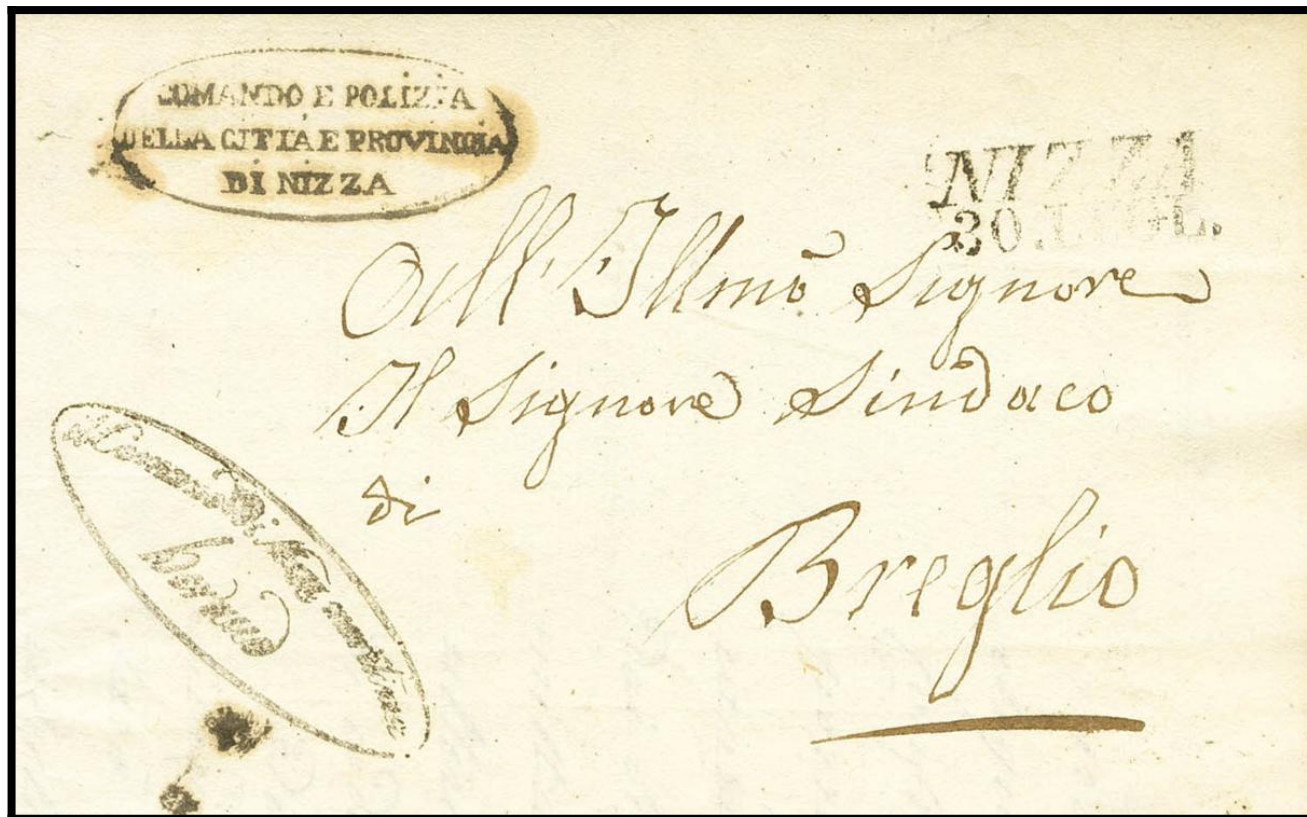 COMANDO E POLIZIA
DELLA CITTÀ E PROVINCIA
DI NIZZA
NIZZA
30.LUGL.
All' Illmo Signore
Il Signore Sindaco
di
Breglio